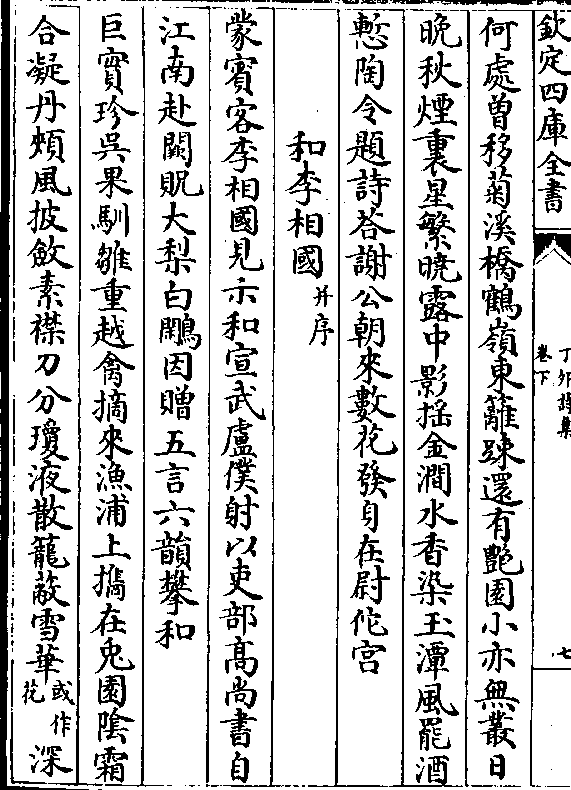 欽定四庫全書
丁卯詩集
卷下
七
何處曾移菊溪橋鶴嶺東籬踈還有艷園小亦無叢日
晚秋煙裏星繁曉露中影搖金澗水香染玉潭風罷酒
慙陶令題詩荅謝公朝來數花發身在尉佗宫
和李相國并序
蒙賓客李相國見示和宣武盧僕射以吏部髙尚書自
江南赴闕貺大梨白鷴因贈五言六韻攀和
巨實珍吳果馴雛重越禽摘來漁浦上攜在兎園隂霜
合凝丹頰風披斂素襟刀分瓊液散籠蔽雪華或作花深